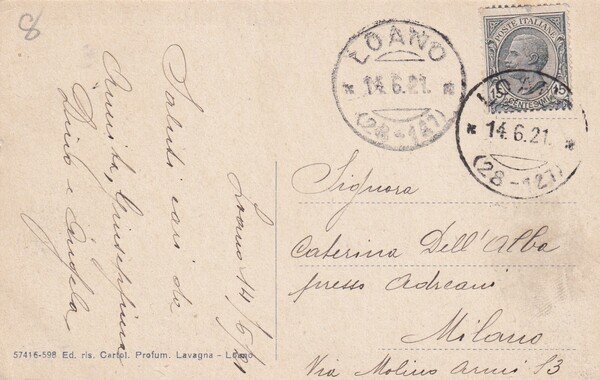 8
Loano 14/6/21
Saluti cari da
Annita, Giuseppina
Dino e Angela
57416-598 Ed. ris. Cartol. Profum. Lavagna - Loano
LOANO
* 14.6.21. *
(28-127)
POSTE ITALIANE
15 15
CENTESIMI
LOANO
* 14.6.21. *
(28-127)
Signora
Caterina Dell'Alba
presso Adreani
Milano
Via Molino Armi 53